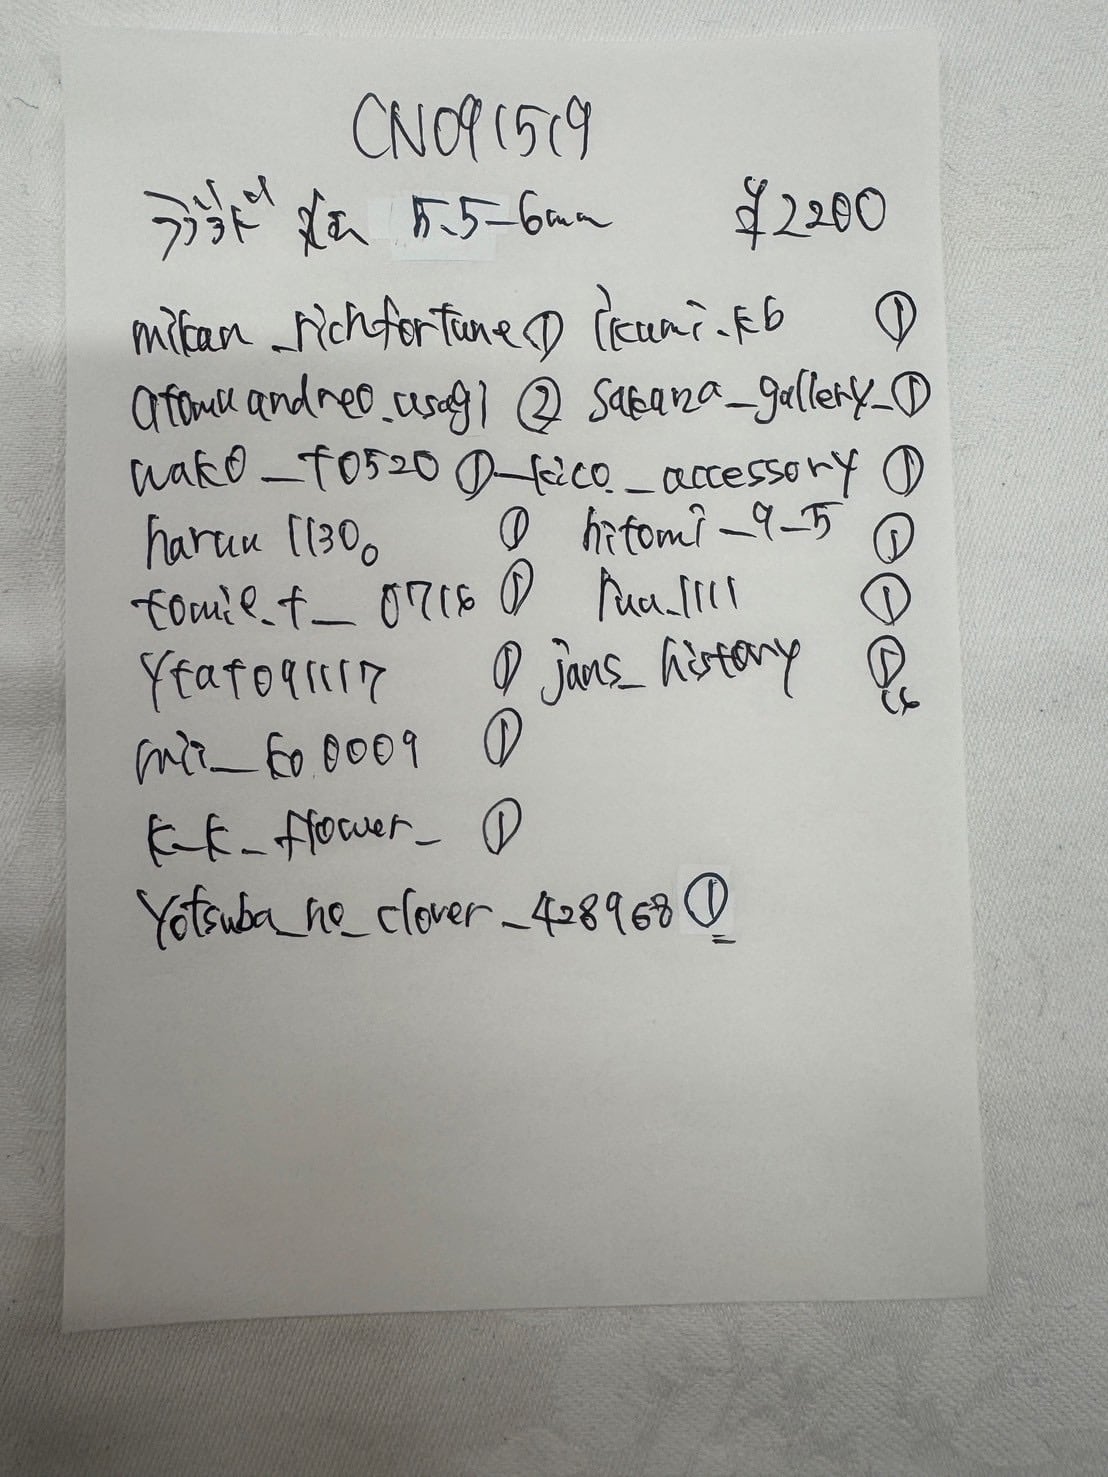 CN091519
5.5-6mm ¥2200
mikan_richfortune① ikumi.kb ①
atomuandreo.usagi ② sakana_gallery_①
wako_t0520 ①_kico._accessory ①
haruu1130。 ① hitomi_9_5 ①
tomie.t__0716 ① ruu_1111 ①
ytat091117 ① jans_history ①
mii_ko.0009 ① 16
k_k_flower_ ①
Yotsuba_no_clover_428968 ①